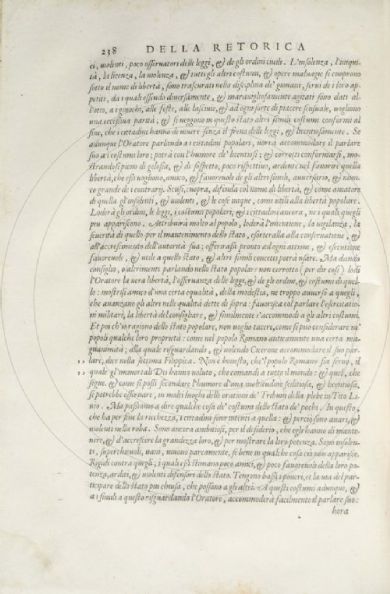 238 DELLA RETORICA
ci, violenti, poco osservatori delle leggi, & de gli ordini civili. L'insolenza, l'iniqui-
tà, la licenza, la violenza, & tutti gli altri costumi, & opere malvage si coprono
sotto il nome di libertà, sono trascurati nella disciplina de' giovani, servi de i loro ap-
petiti, da i quali essendo diversamente, & maravigliosamente agitati sono dati al-
l'otio, a i giuochi, alle feste, alle lascivie, & ad ogni sorte di piacere sensuale, vogliono
una eccessiva parità, & si veggono in questo stato altri simili costumi conformi al
fine, che i cittadini hanno di vivere senza il freno delle leggi, & licentiosamente. Se
adunque l'Oratore parlando a i cittadini popolari, vorrà accommodar il parlare
suo a i costumi loro; potrà con l'humore de' licentiosi, & corrotti conformarsi, mo-
strandosi pieno di gelosia, & di sospetto, poco rispettivo, ardente nel favorire quella
libertà, che essi vogliono, amico, & favorevole de gli altri simili, avversario, & nimi-
co grande de i contrarij. Scusi, cuopra, difenda col nome di libertà, & come amatore
di quella gl'insolenti, & violenti, & le cose inique, come utili alla libertà popolare.
Loderà gli ordini, le leggi, i costumi popolari, & i cittadini ancora, ne i quali quegli
più appariscono. Attribuirà molto al popolo, loderà l'intentione, la vigilanza, la
severità di quello per il mantenimento dello stato, essorteralla alla conservatione, &
all'accrescimento dell'autorità sua; offerirassi pronto ad ogni attione, & essecutione
favorevole, & utile a quello stato, & altri simili concetti potrà usare. Ma dando
consiglio, o altrimenti parlando nello stato popolare non corrotto (per dir così) lodi
l'Oratore la vera libertà, l'osservanza delle leggi, & de gli ordini, & costumi di quel-
la: mostrisi amico d'una certa equalità, della modestia, ne troppo avverso a quegli,
che avanzano gli altri nelle qualità dette di sopra: favorisca col parlare l'essercitatio-
ni militare, la libertà del consigliare, & similmente s'accommodi a gli altri costumi.
Et poi che io ragiono dello stato popolare, non voglio tacere, come si può considerare ne'
popoli qualche loro proprietà: come nel popolo Romano anticamente una certa ma-
gnanimità; alla quale riguardando, & usando Cicerone accommodò il suo par-
lare, dicendo nella settima Filippica. Non è honesto, che'l popolo Romano sia servo, il
quale gl'immortali Dei hanno voluto, che comandi a tutto il mondo: & quel, che
segue. & come si possi secondare l'humore d'una moltitudine seditiosa, & licentiosa,
si potrebbe osservare, in molti luoghi delle orationi de' Tribuni della plebe in Tito Li-
vio. Ma passiamo a dire qualche cosa de' costumi dello stato de' pochi. In questo,
che ha per fine la ricchezza, i cittadini sono intenti a quella: & perciò sono avari, &
violenti nella robba. Sono ancora ambitiosi, per il desiderio, che eglino hanno di mante-
nere, & d'accrescere la grandezza loro, & per mostrare la loro potenza. Sono insolen-
ti, superchievoli, vani, vivono parcamente, se bene in qualche cosa ciò non apparisce.
Rigidi contra quegli, i quali essi stimano poco amici, & poco fautrevoli della loro po-
tenza, arditi, & violenti difensori dello stato. Tengono bassi i poveri, & la via del par-
ticipare dello stato più chiusa, che possono a gli altri. A questi costumi adunque, &
a i simili a questo riguardando l'Oratore, accommoderà facilmente il parlare suo:
hora